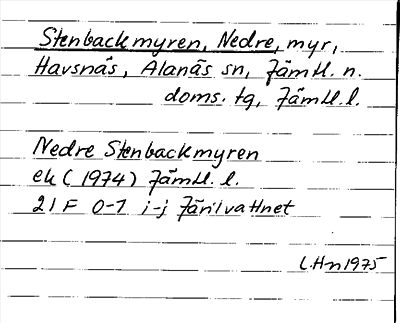 Stenbackmyren, Nedre, myr,
Havsnäs, Alanäs sn, Jämtl. n.
doms. tg, Jämtl. l.
Nedre Stenbackmyren
ek (1974) Jämtl. l.
21 F 0-1 i-j Järilvattnet
L.Hn 1975